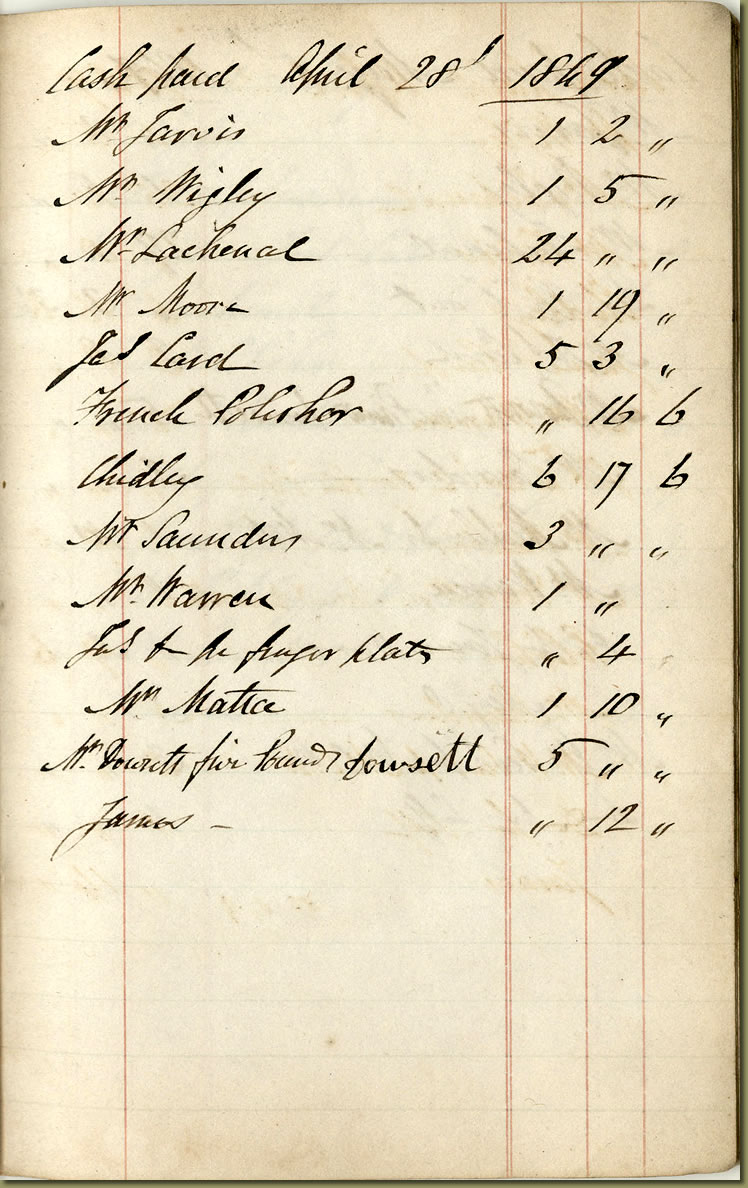 Cash paid April 28 1849
Mr Jarvis 1 2 "
Mr Wigley 1 5 "
Mr Lachenal 24 " "
Mr Moore 1 19 "
Jas Card 5 3 "
French Polisher " 16 6
Chidley 6 17 6
Mr Saunders 3 " "
Mr Warren 1 "
Jas finger plats " 4
Mr Matta 1 10 "
Mr Dowsett five Pounds Dowsett 5 " "
James – " 12 "